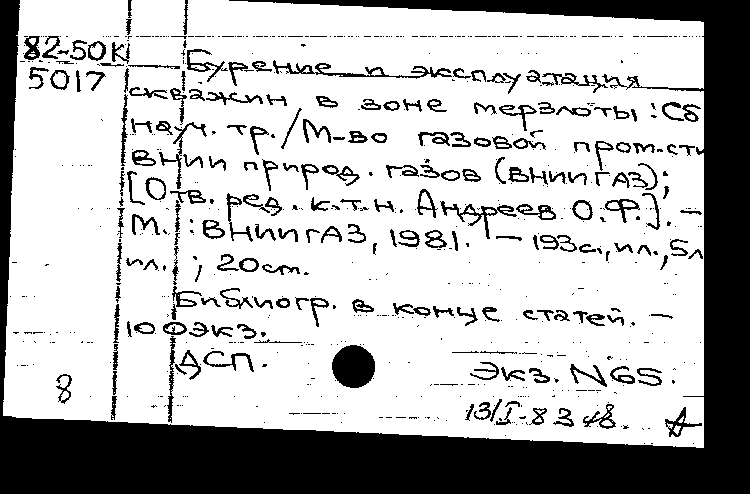 82-50К
5017
Бурение и эксплуатация
скважин в зоне мерзлоты : Сб
науч. тр. / М-во газовой пром-сти
ВНИИ природ. газов (ВНИИГАЗ);
[Отв. ред. к.т.н. Андреев О.Ф.]. –
М. : ВНИИГАЗ, 1981. – 193с., ил., 5л
ил. ; 20см.
Библиогр. в конце статей. –
100экз.
ДСП.
Экз. N65.
8
13/I-83 48. А